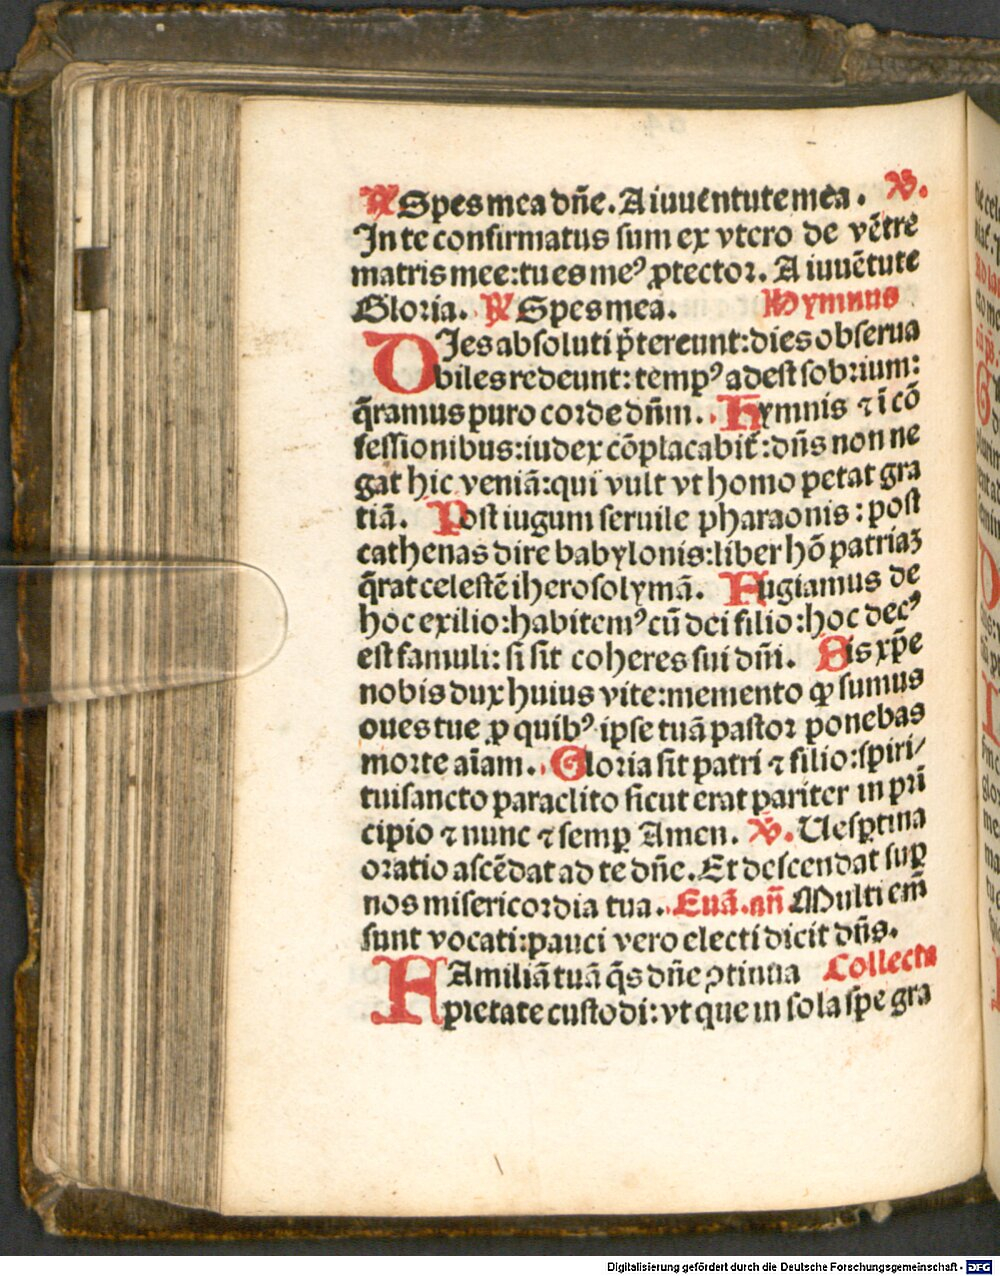 ℟ Spes mea dñe. A iuuentute mea. ℣.
In te confirmatus sum ex vtero de vētre
matris mee: tu es meꝰ ꝓtector. A iuuētute
Gloria. ℟ Spes mea. Hymnus
DIes absoluti p̄tereunt: dies obserua
biles redeunt: tempꝰ adest sobrium:
q̄ramus puro corde dñm. Hymnis ⁊ ī cō
fessionibus: iudex cōplacabit᷑: dñs non ne
gat hic veniā: qui vult vt homo petat gra
tiā. Post iugum seruile pharaonis: post
cathenas dire babylonis: liber hō patriaꝫ
q̄rat celestē iherosolymā. Fugiamus de
hoc exilio: habitemꝰ cū dei filio: hoc decꝰ
est famuli: si sit coheres sui dñi. Sis xp̄e
nobis dux huius vite: memento ꝙ sumus
oues tue ꝓ quibꝰ ipse tuā pastor ponebas
morte aīam. Gloria sit patri ⁊ filio: spiri/
tui sancto paraclito sicut erat pariter in pri
cipio ⁊ nunc ⁊ semꝑ Amen. ℣. Uesꝑtina
oratio ascēdat ad te dñe. Et descendat suꝑ
nos misericordia tua. Euā. añ Multi em̄
sunt vocati: pauci vero electi dicit dñs.
FAmiliā tuā q̄s dñe ꝯtinua Collecta
pietate custodi: vt que in sola spe gra
Digitalisierung gefördert durch die Deutsche Forschungsgemeinschaft - DFG